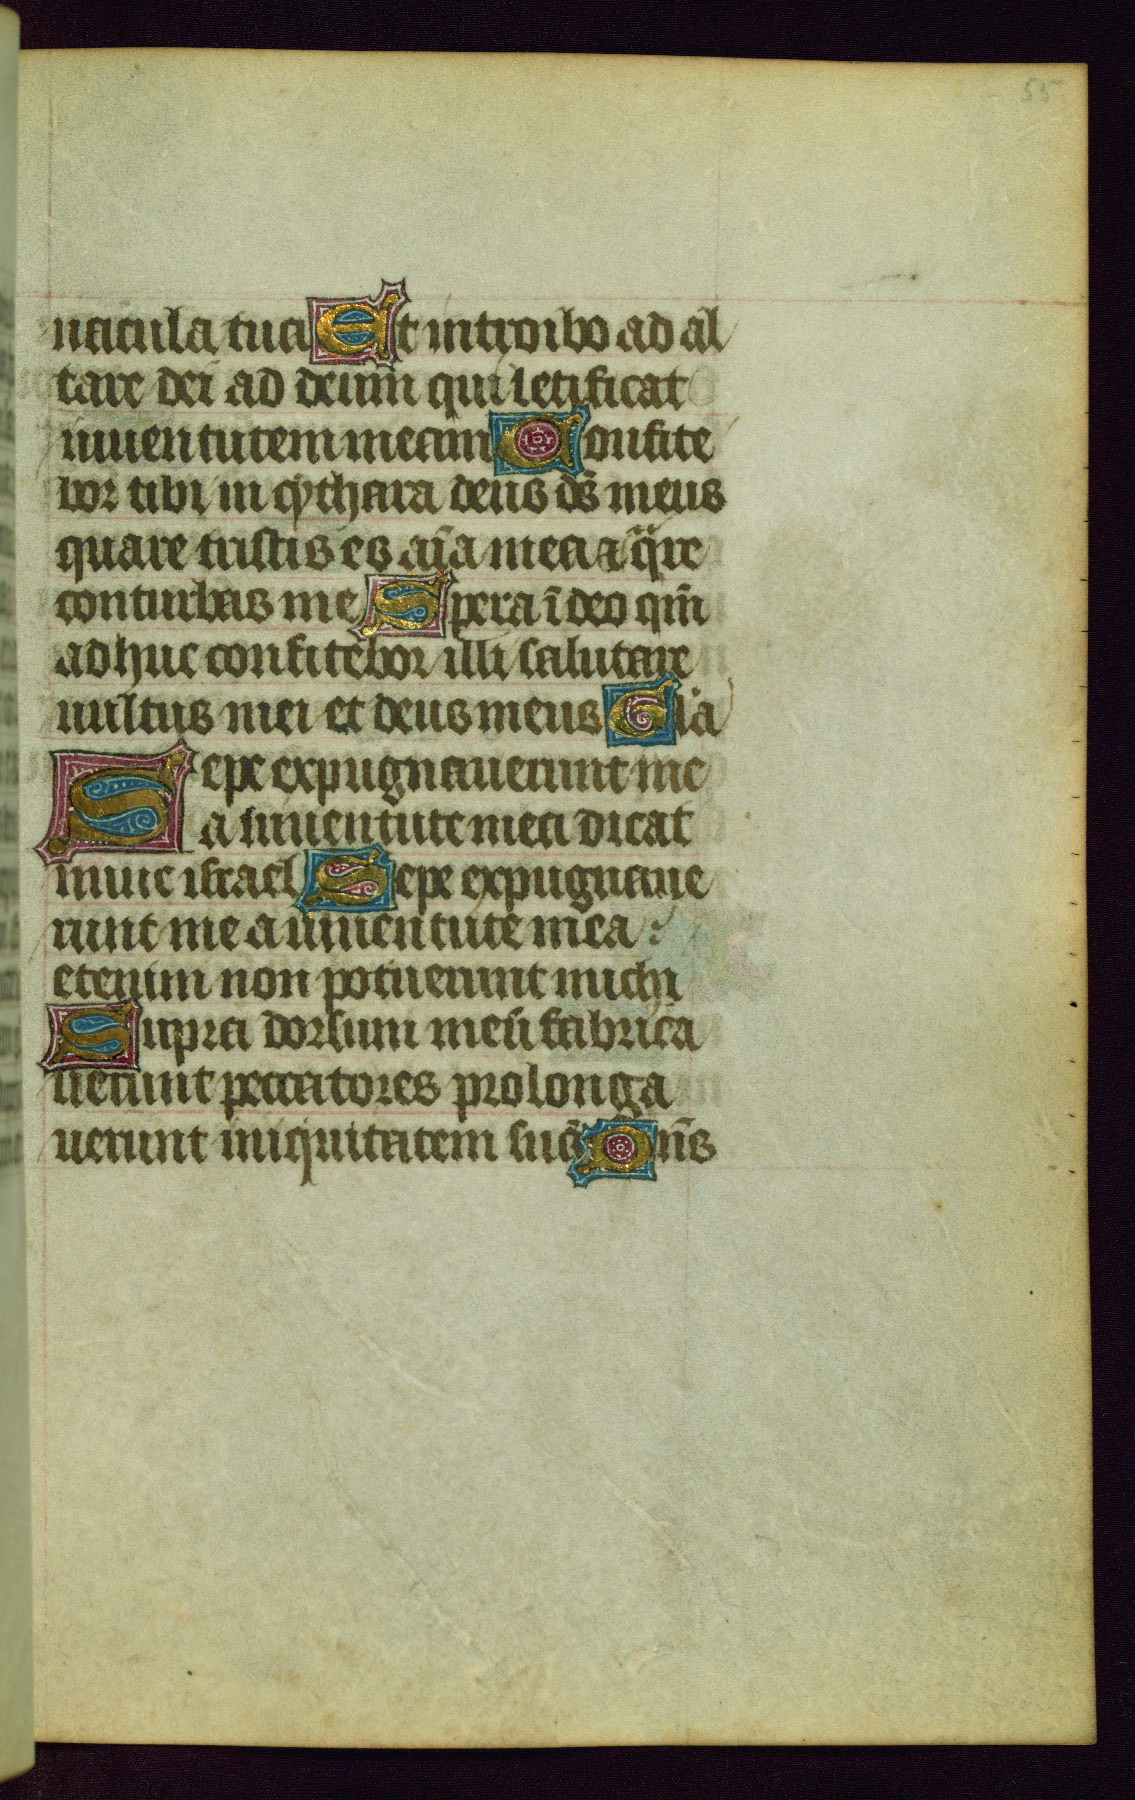 55
nacula tua Et introibo ad al
tare dei ad deum qui letificat
iuuentutem meam Confite
bor tibi in cythara deus ds̄ meus
quare tristis es aīa mea ⁊ q̄re
conturbas me Spera ī deo qm̄
adhuc confitebor illi salutare
uultus mei et deus meus Gl'a
Sepe expugnauerunt me
a iuuentute mea dicat
nunc israel Sepe expugnaue
runt me a iuuentute mea :
etenim non potuerunt michi
Supra dorsum meū fabrica
uerunt peccatores prolonga
uerunt iniquitatem suā Dn̄s